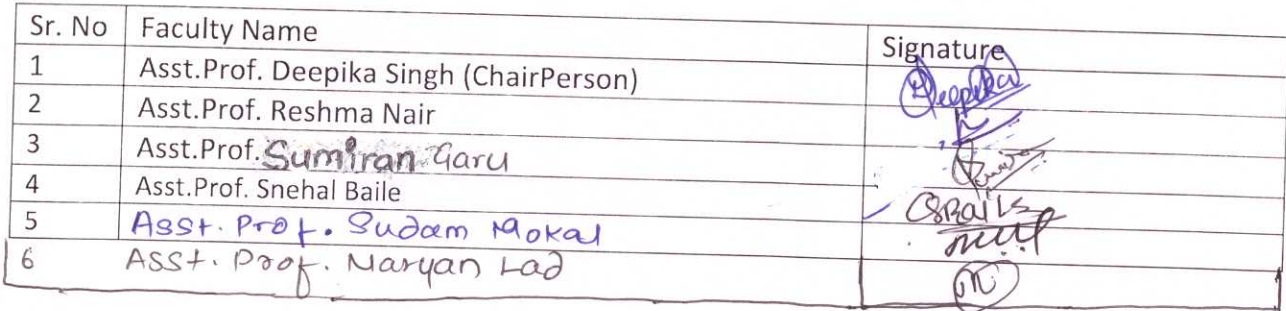 Sr. No Faculty Name Signature
1 Asst.Prof. Deepika Singh (ChairPerson) Deepika
2 Asst.Prof. Reshma Nair
3 Asst.Prof. Sumiran Garu
4 Asst.Prof. Snehal Baile SBaile
5 Asst. Prof. Sudam Mokal
6 Asst. Prof. Maryan Lad